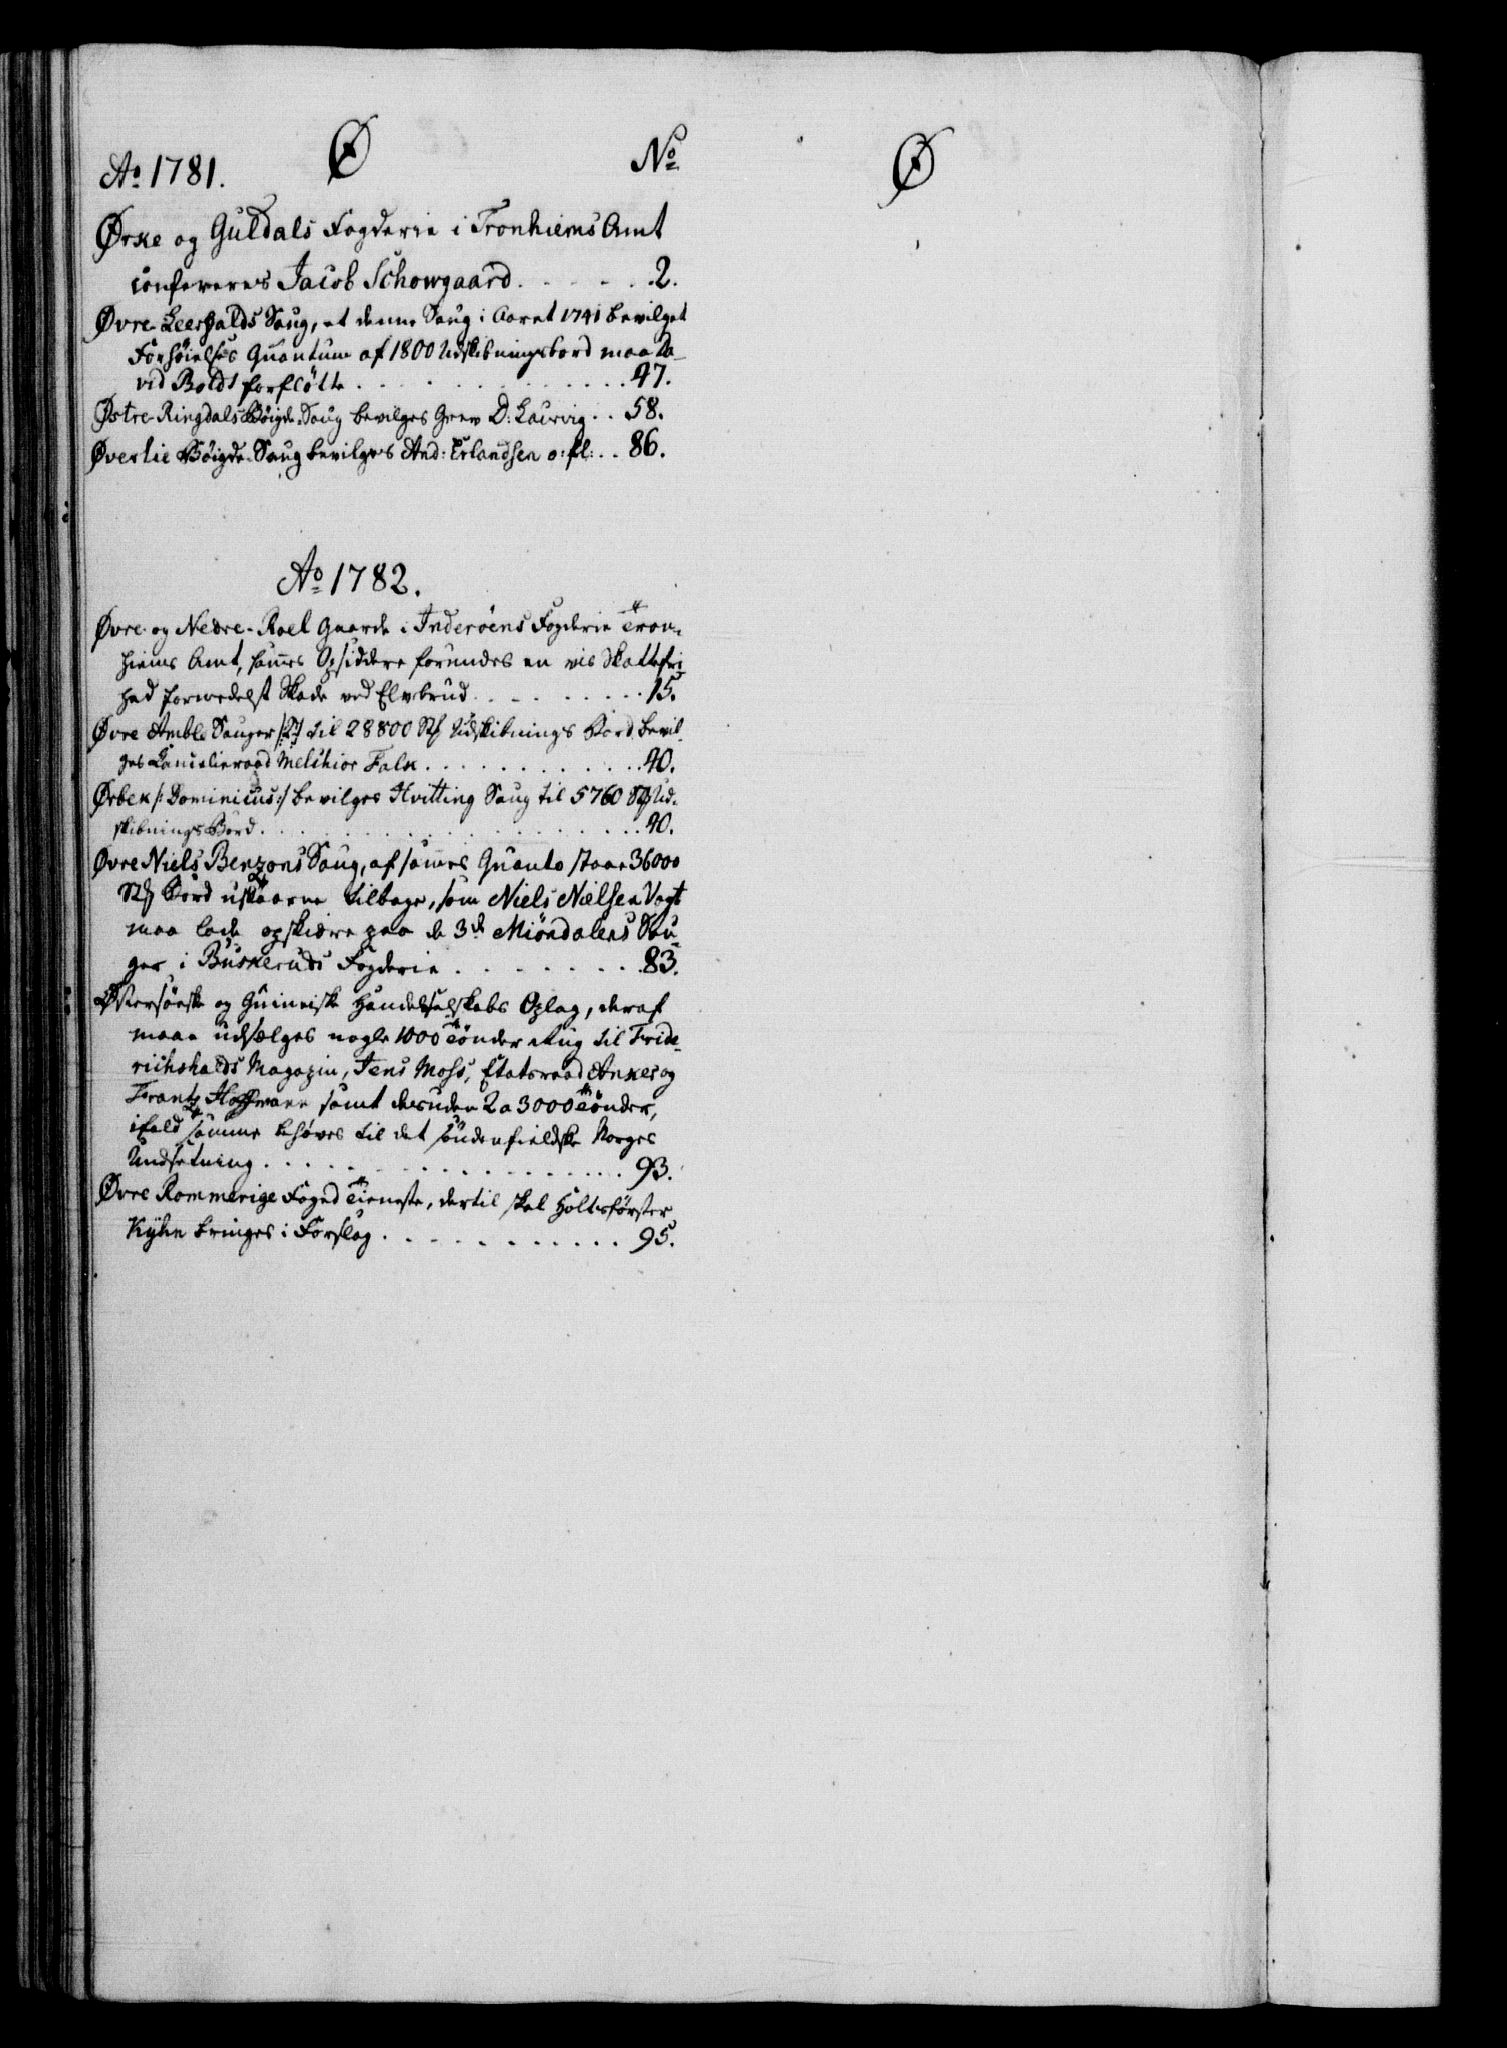 Ao 1781. Ø No Ø
Ørke og Guldals Fogderie i Tronhiems Amt
confereres Jacob Schowgaard . . . . . . 2.
Øvre-Leerfalds Saug, at denne Saug i Aaret 1741 bevilget
Forhøielses Quantum af 1800 Udskibningsbord maa Da-
vid Boldt forflötte . . . . . . . . . . . 47.
Østre-Ringdals Böigde-Saug bevilges Grev D: Laurvig . . 58.
Øverlie Böigde-Saug bevilges And: Erlandsen o: fl: . . 86.
Ao 1782.
Øvre- og Nedre-Roel Gaarde i Inderöens Fogderie Tron-
hiems Amt, sammes Opsiddere forundes en vis Skattefri-
hed formedelst Skade ved Elvebrud . . . . . . . . . 15.
Øvre Amble Sauger /:2:/ til 28800 St Udskibnings Bord bevil-
ges Cancelieraad Melchior Falk . . . . . . . . . . . . 40.
Ørbek /: Dominicus :/ bevilges Hvitting Saug til 5760 St Ud-
skibnings Bord . . . . . . . . . . . . . . . . 40.
Øvre Niels Benzons Saug, af sammes Quanto staae 36000
St Bord uskaarne tilbage, som Niels Nielsen Vogt
maa lade opskiære paa de 3de Miöndalens Sau-
ger i Buskeruds Fogderie . . . . . . . . 83.
Østersöeske og Guineiske Handelselskabs Oplag, deraf
maae udsælges nogle 1000 Tönder Rug til Fride-
richshalds Magazin, Jens Moss, Etatsraad Anker og
Frantz Hoffmann samt desuden 2 a 3000 Tönder,
ifald samme behöves til det söndenfieldske Norges
Undsetning . . . . . . . . . . . . . . . . 93.
Øvre Rommerige Foged Tieneste, dertil skal Holtsförster
Kyhn bringes i Forslag . . . . . . . . . . . 95.